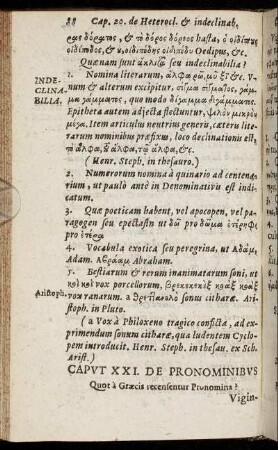 88 Cap. 20. de Heterocl. & indeclinab.
δόρατος, & τὸ δόρος δόριος hasta, ὁ οἰδίπυς
οἰδίποδος, & ὁ οἰδιπόδης οἰδιπόδυ Oedipus, &c.
Quænam sunt ἄκλιτα seu indeclinabilia?
INDE-
CLINA-
BILIA.
1. Nomina literarum, ἄλφα ῥῶ, μῦ ξῖ &c. V-
num & alterum excipitur, σίγμα σίγματος, γάμ-
μα γάμματος, quo modo δίγαμμα διγάμματος.
Epitheta autem adjecta flectuntur, ψιλὸν μικρὸν
μέγα. Item articuli neutrius generis, cæteru lite-
rarum nominibus præfixus, loco declinationis est,
τὸ ἄλφα, τοῦ ἄλφα, τῷ ἄλφα, &c.
(Henr. Steph. in thesauro.)
2. Numerorum nomina à quinario ad centena-
rium, ut paulò antè in Denominativis est indi-
catum.
3. Quæ poeticam habent, vel apocopen, vel pa-
ragogen seu epectasin ut δῶ pro δῶμα
pro
4. Vocabula exotica seu peregrina, ut Ἀδάμ,
Adam. Ἀβραάμ Abraham.
5. Bestiarum & rerum inanimatarum soni, ut
κοῒ κοῒ vox porcellorum, βρεκεκεκὲξ κοὰξ κοὰξ
Aristoph.
vox ranarum. a θρεττανελὸ sonus citharæ. Ari-
stoph. in Pluto.
(a Vox à Philoxeno tragico conficta, ad ex-
primendum sonum citharæ, qua ludentem Cyclo-
pem introducit. Henr. Steph. in thesau. ex Sch.
Arist.)
CAPVT XXI. DE PRONOMINIBVS
Quot à Græcis recensentur Pronomina?
Vigin-